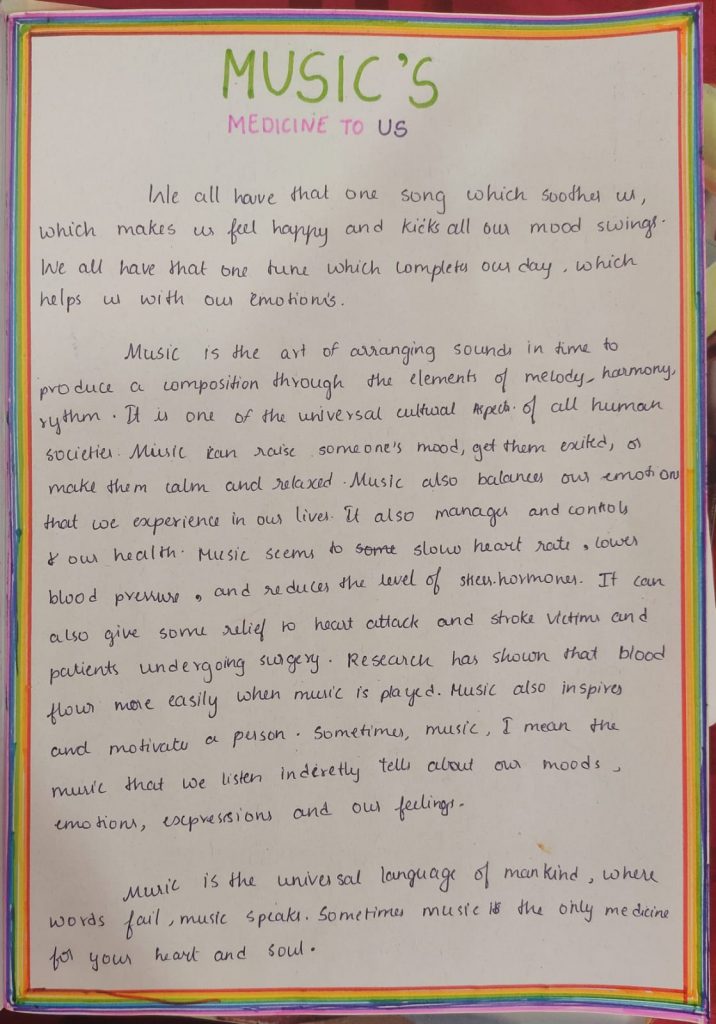 MUSIC'S
MEDICINE TO US
We all have that one song which soothes us,
which makes us feel happy and kicks all our mood swings.
We all have that one tune which completes our day, which
helps us with our emotion's.
Music is the art of arranging sounds in time to
produce a composition through the elements of melody, harmony,
rythm. It is one of the universal cultural aspects of all human
societies. Music can raise someone's mood, get them exited, or
make them calm and relaxed. Music also balances our emotions
that we experience in our lives. It also manages and controls
our health. Music seems to some slow heart rate, lower
blood pressure, and reduces the level of stress-hormones. It can
also give some relief to heart attack and stroke victims and
patients undergoing surgery. Research has shown that blood
flows more easily when music is played. Music also inspires
and motivates a person. Sometimes, music, I mean the
music that we listen inderetly tells about our moods,
emotions, expressions and our feelings.
Music is the universal language of mankind, where
words fail, music speaks. Sometimes music is the only medicine
for your heart and soul.